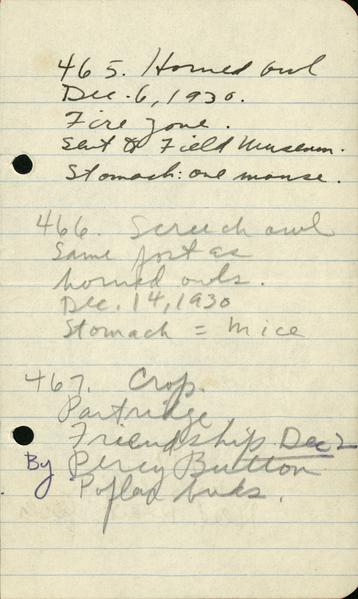 465. Horned owl
Dec. 6, 1930.
Fire zone.
Sent to Field Museum.
Stomach: one mouse.
466. Screech owl
Same post as
horned owls.
Dec. 14, 1930
Stomach = mice
467. Crop.
Partridge
Friendship Dec 2
By Percy Button
Poplar buds.